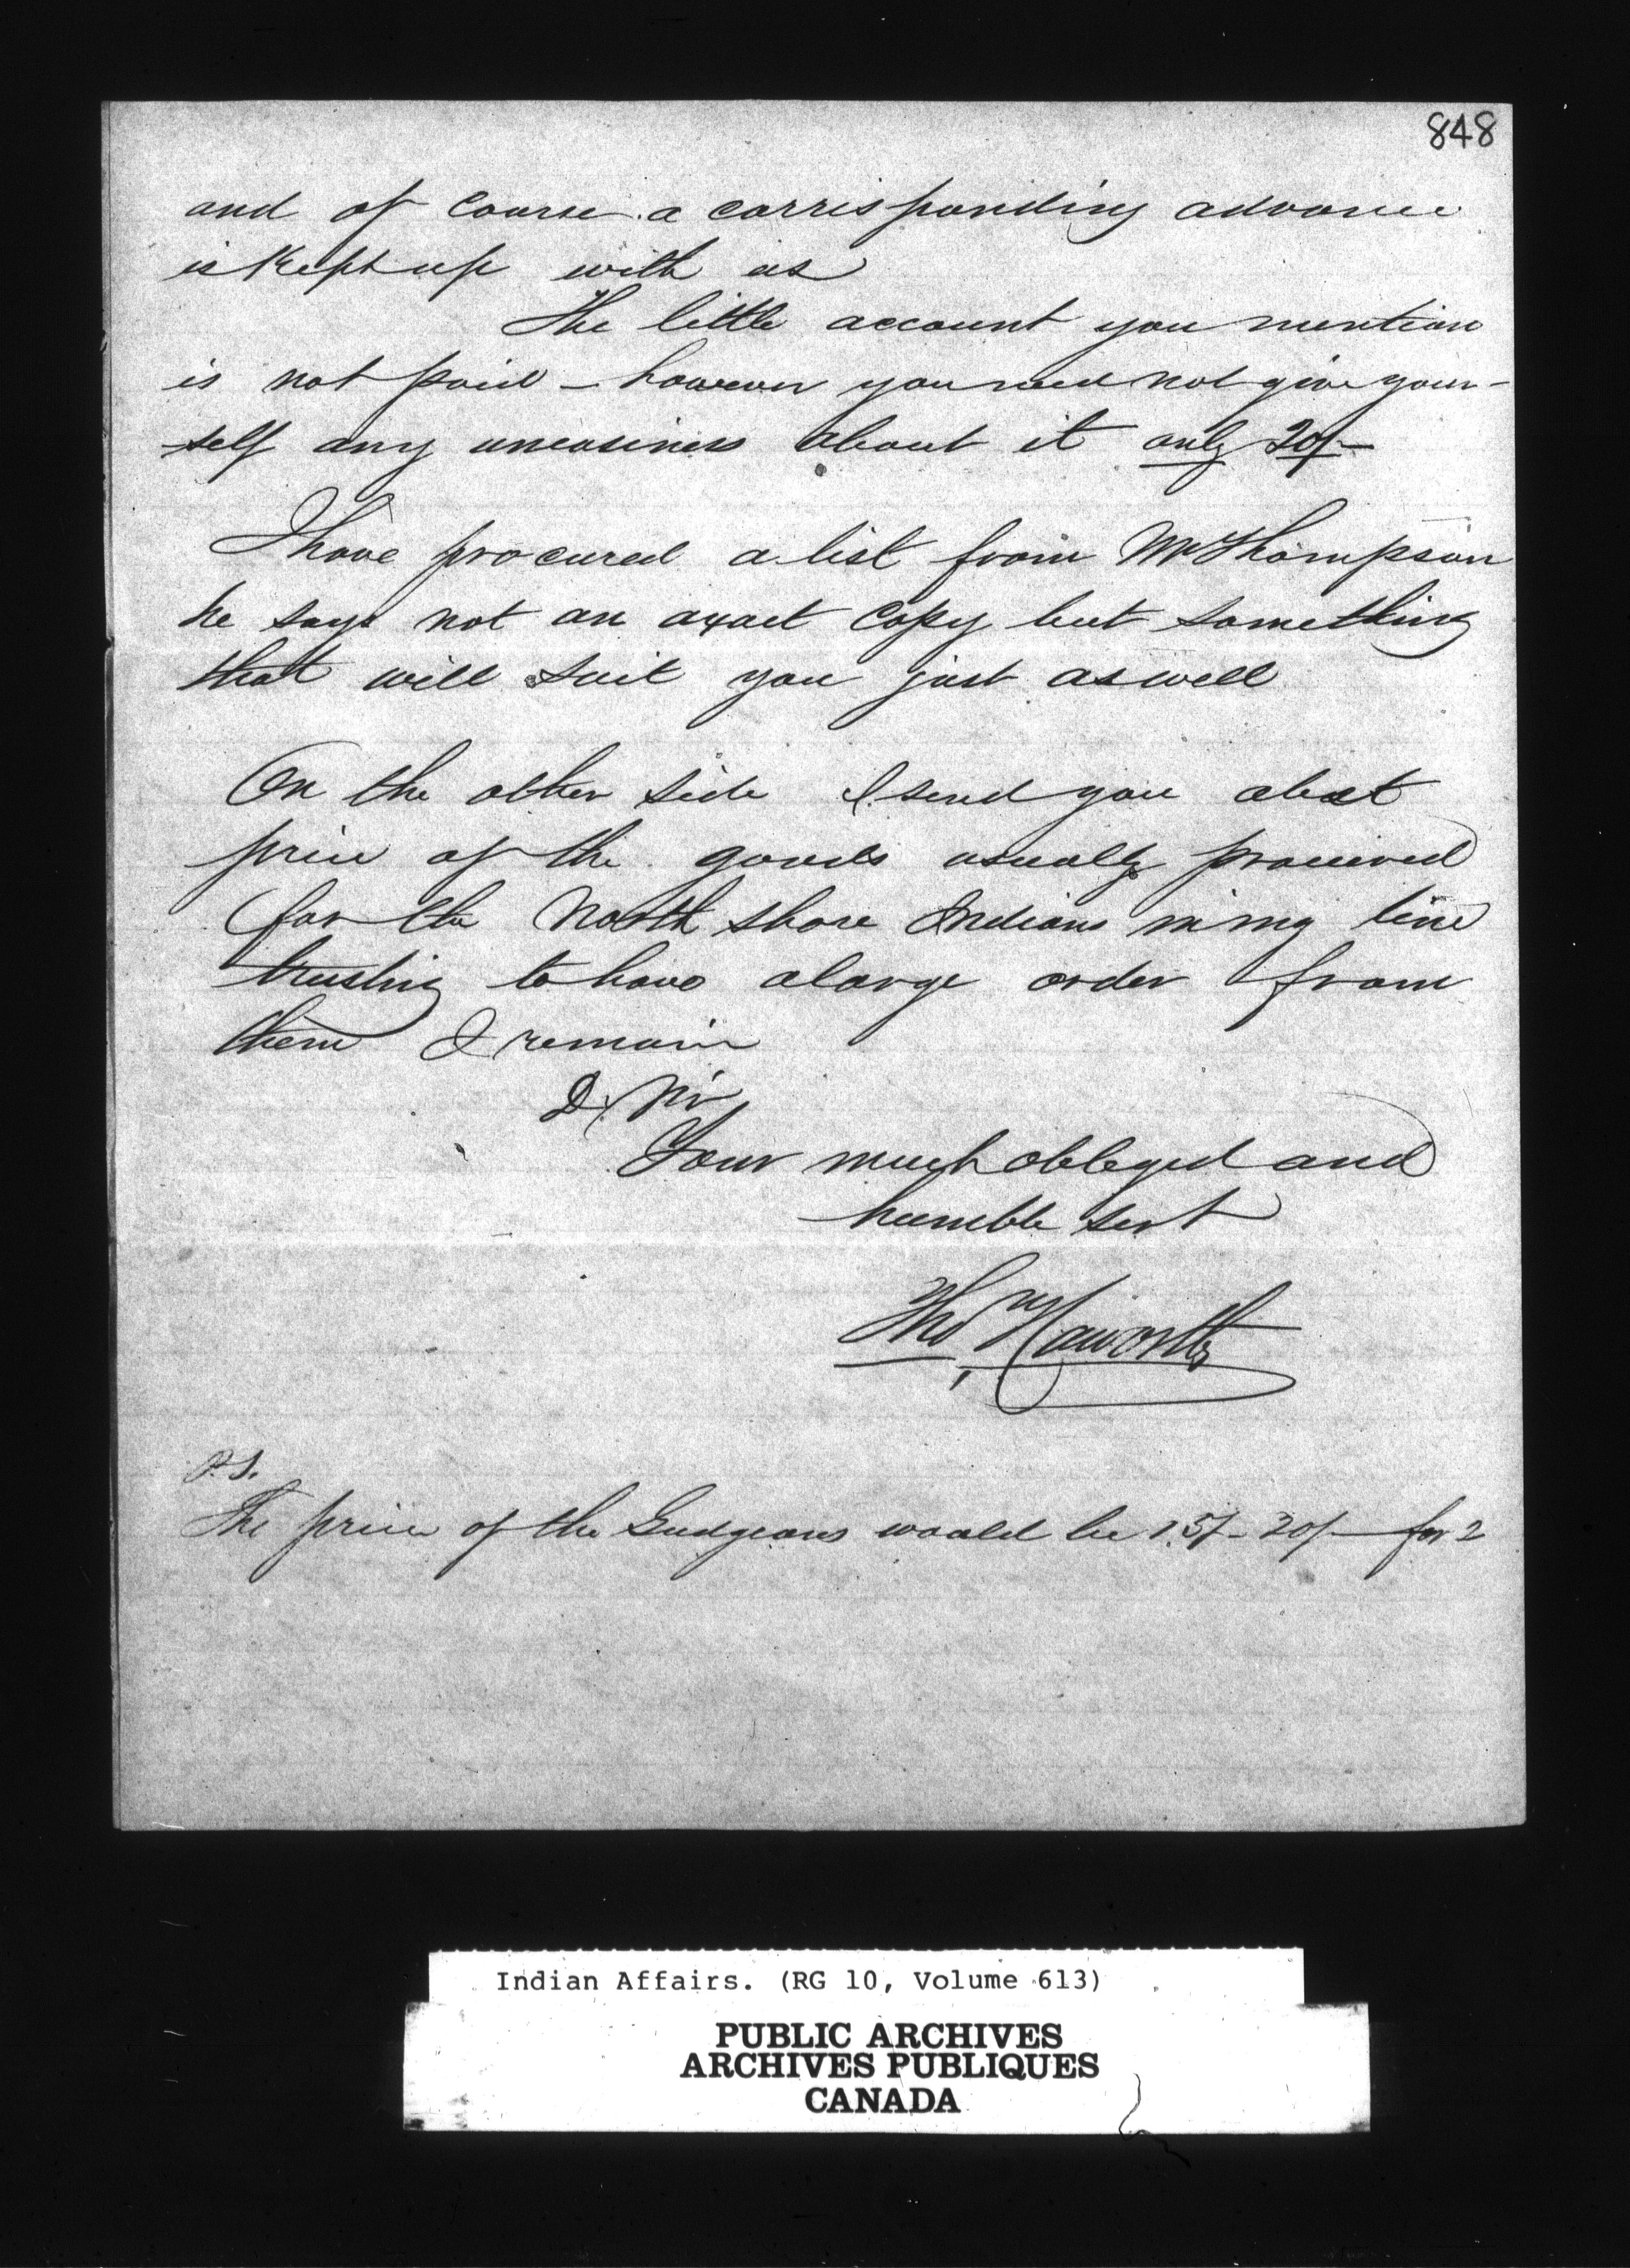 848
and of course a corrisponding advance
is Kept up with us
The little account you mention
is not paid - however you need not give your-
-self any uneasiness about it only 20/-
I have procured a list from Mr Thompson
he says not an exact Copy but something
that will suit you just as well
On the other side I send you abot
price of the goods usually procured
for the North shore Indians in my line
trusting to have a large order from
them I remain
D. Sir
Your much obleged and
humble Servt
Thos Haworth
P.S.
The price of the Gudgeons would be 15/- 20/- for 2
Indian Affairs. (RG 10, Volume 613)
PUBLIC ARCHIVES
ARCHIVES PUBLIQUES
CANADA